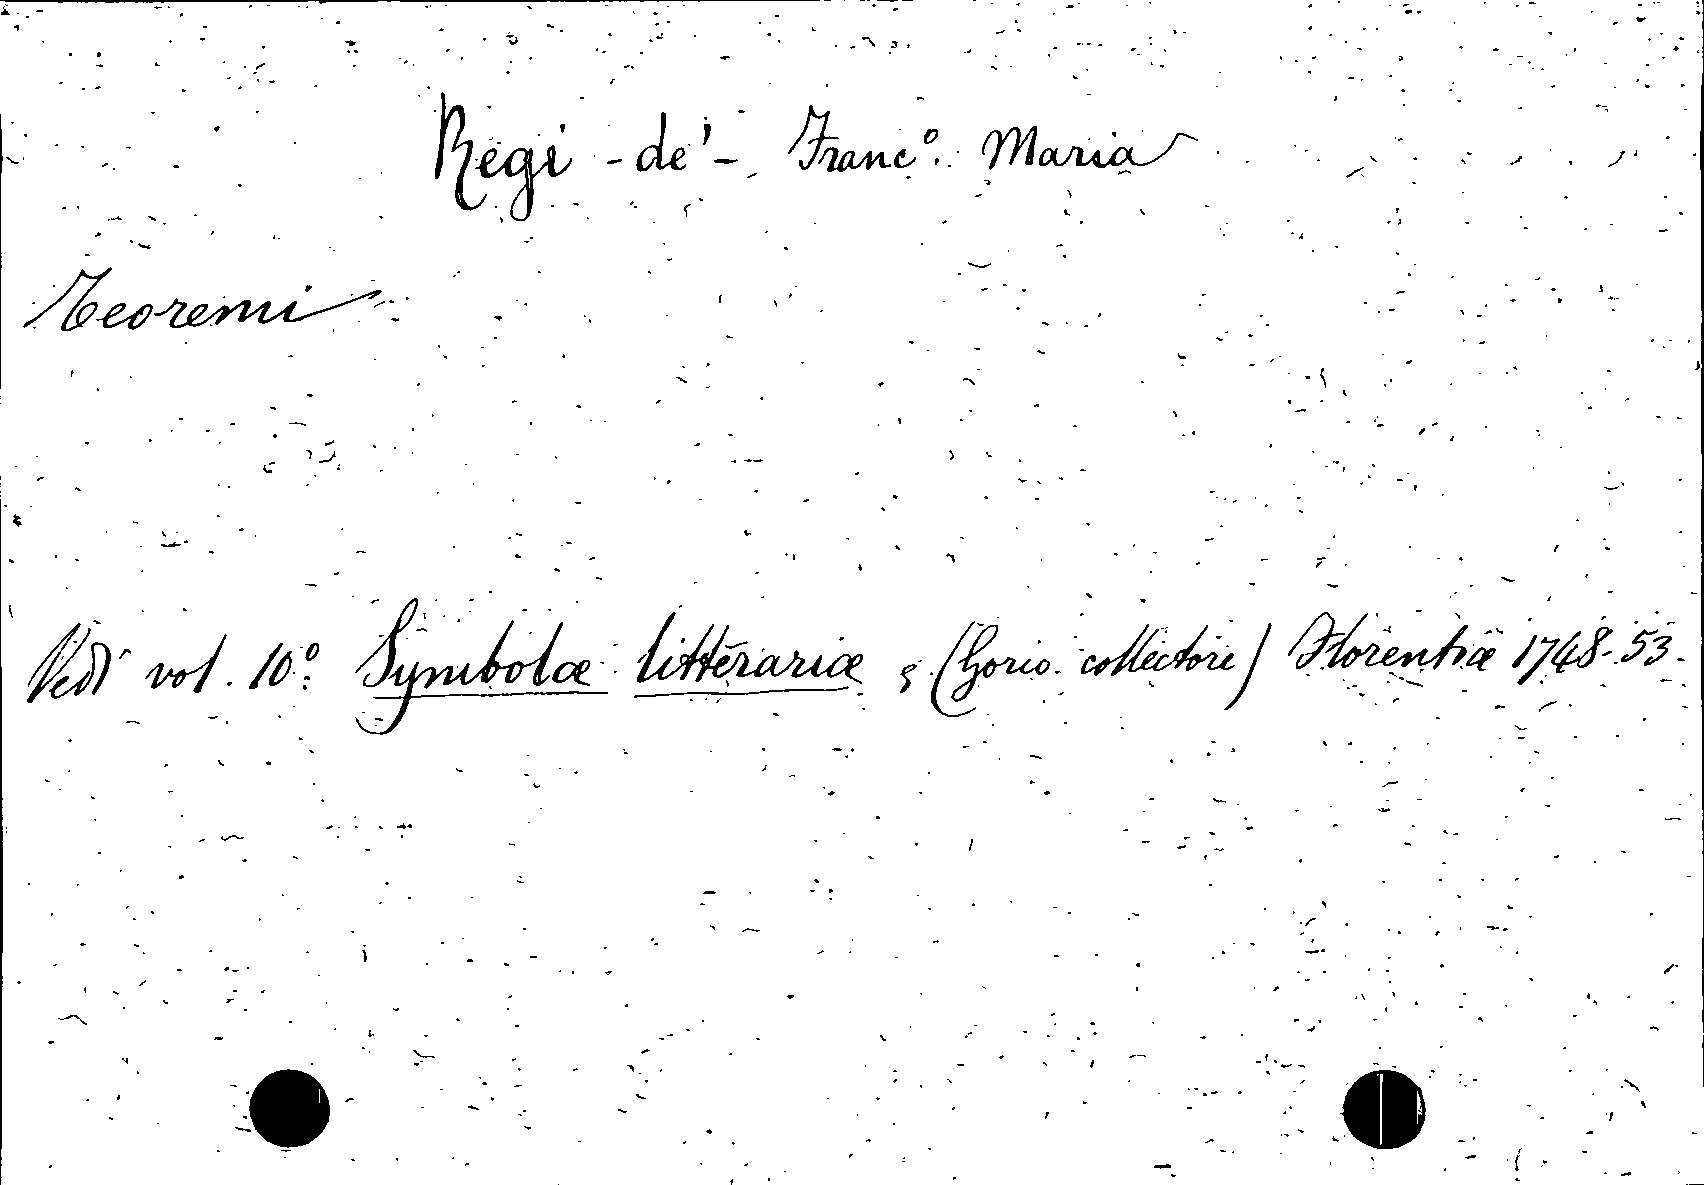 Regi - de' - Franc.º Maria
Teoremi
Vedi vol. 10º: Symbolæ litterariæ, (Gorio collectore) Florentiæ 1748-53.